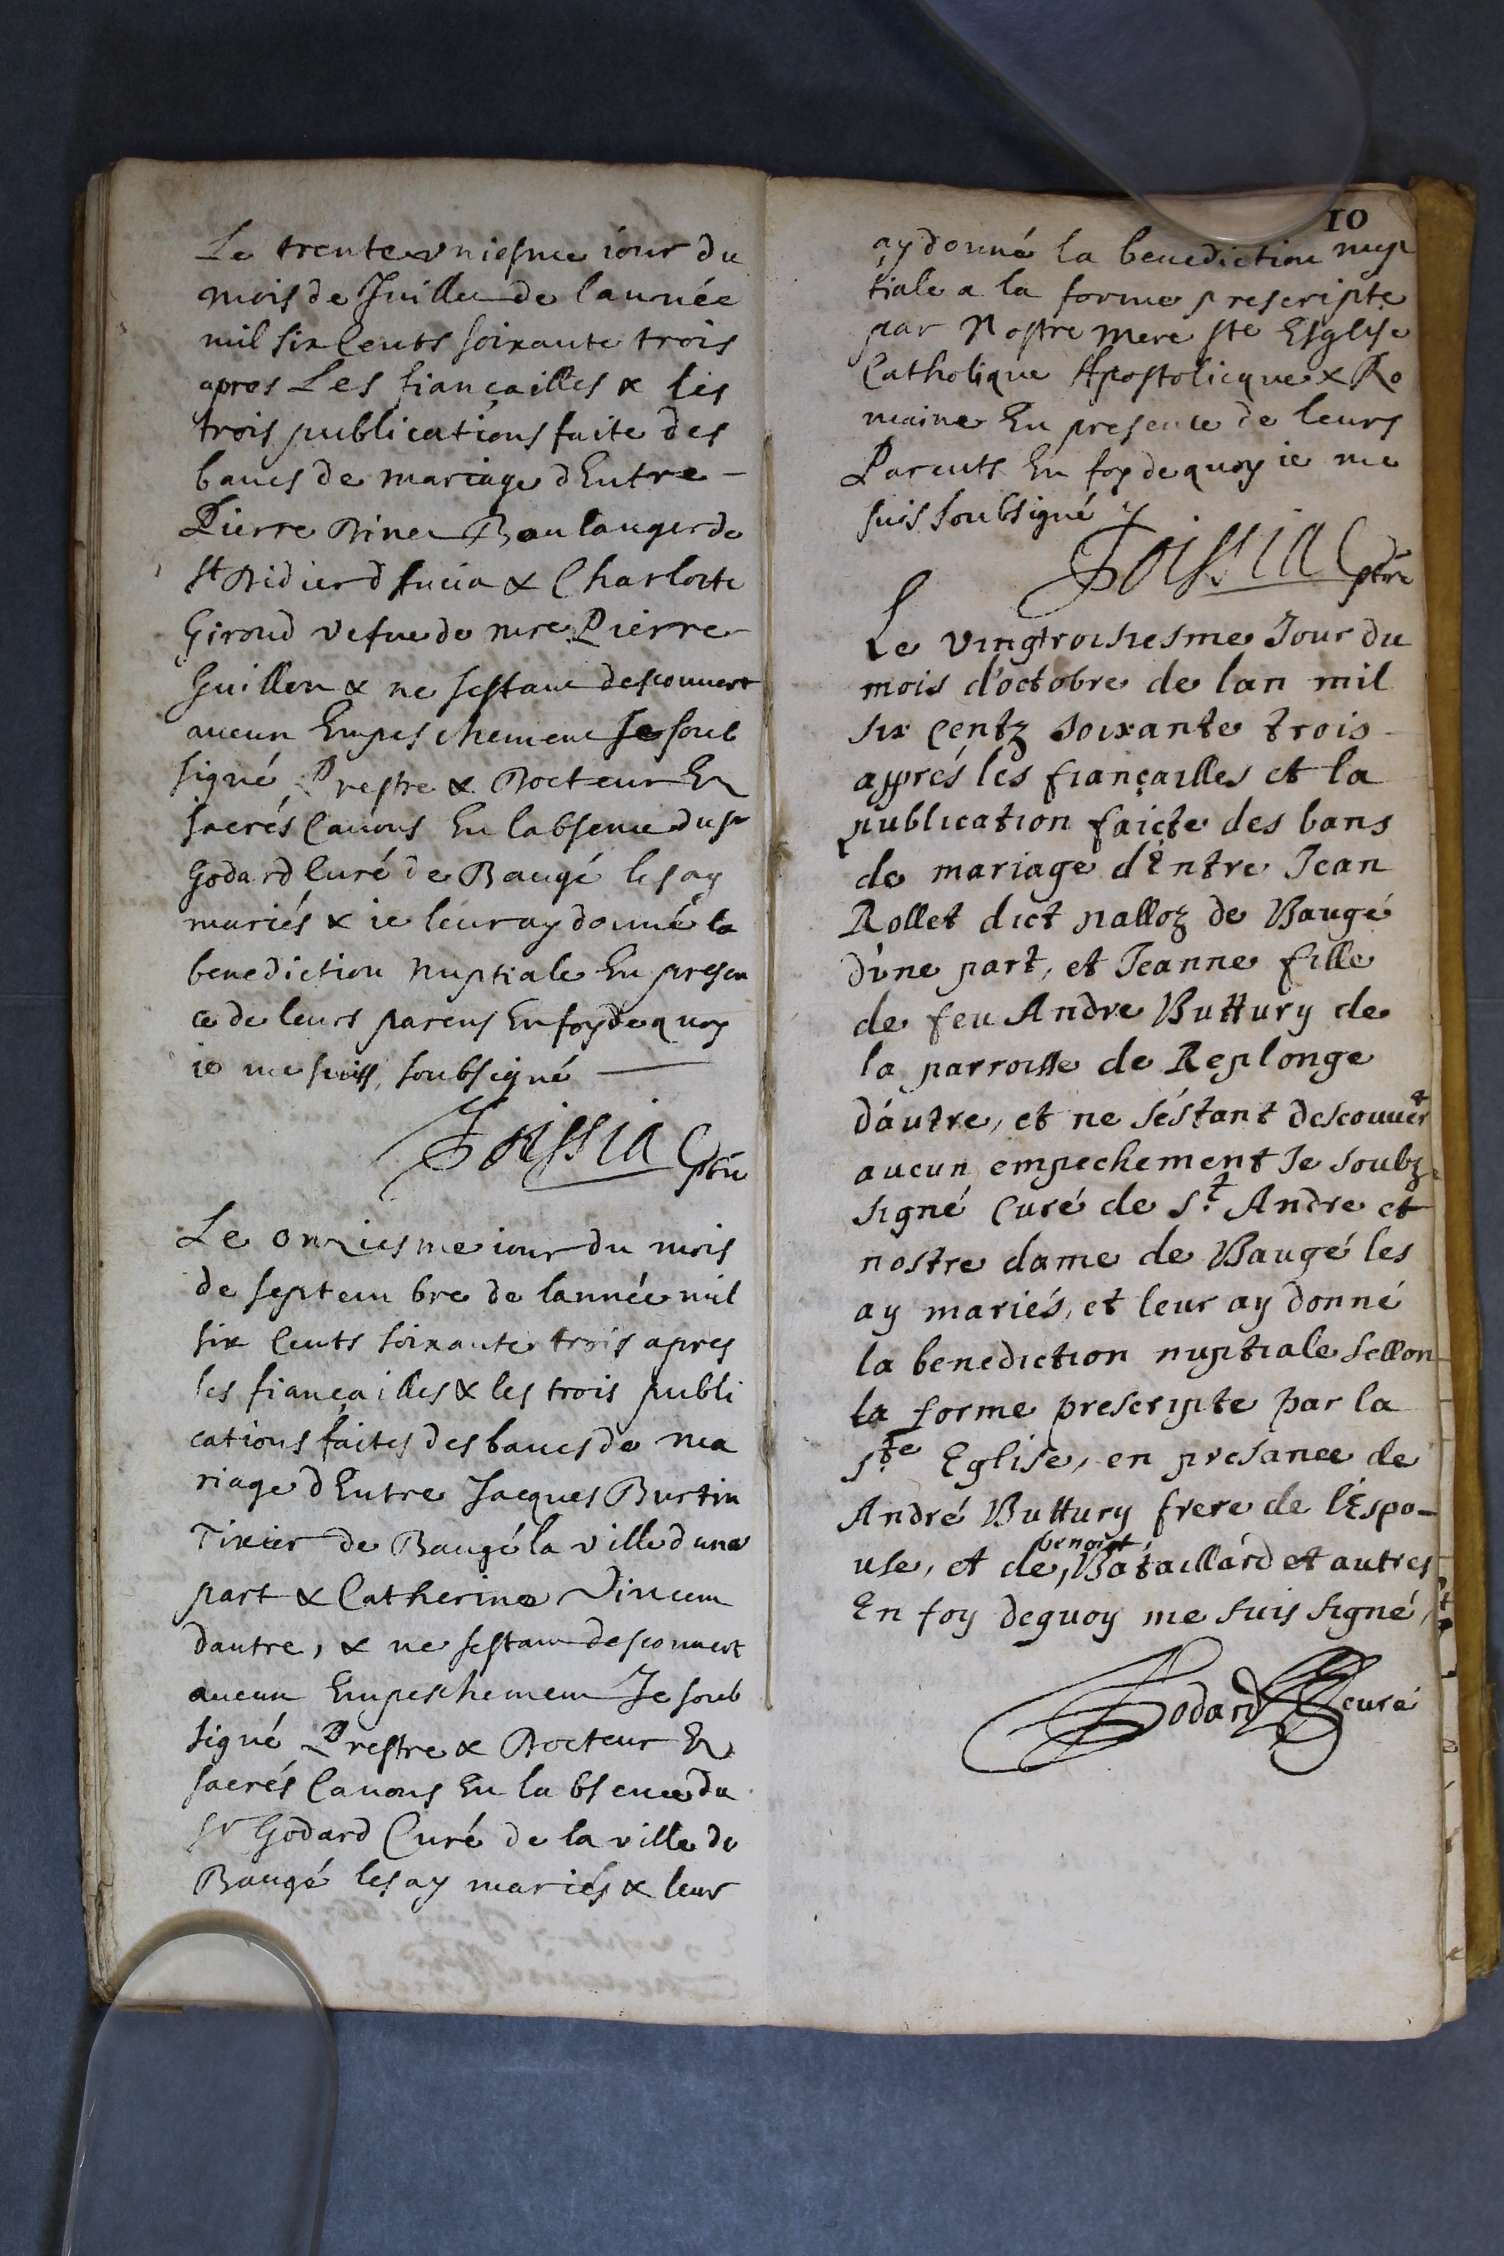 Le trente vniesme iour du
mois de Juillet de l'année
mil six Cents soixante trois
apres Les fiançailles & les
trois publications faite des
bancs de mariage dEntre –
Pierre Boulanger de
St Didier & Charlotte
Giroud vefue de mre Pierre
Guillon & ne sestant descouuert
aucun Empeschement Je soub
signé Prestre & Docteur En
sacrés Canons En labsence du sr
Godard Curé de Baugé les ay
mariés & ie leur ay donné la
benediction nuptiale En presen
ce de leurs parens En foy de quoy
ie me suis soubsigné
Joissia ptre
Le onziesme iour du mois
de septembre de lannée mil
six Cents soixante trois apres
les fiançailles & les trois publi
cations faites des bancs de ma
riage dEntre Jacques Burtin
Tixier de Baugé la ville d'une
part & Catherine Vincent
dautre, & ne sestant descouuert
aucun Empeschement Je soub
signé Prestre & Docteur En
sacrés Canons En labsence du
sr Godard Curé de la ville de
Baugé les ay mariés & leur
10
ay donné la benediction nup
tiale a la forme prescripte
par Nostre mere ste Esglise
Catholique Apostolicque & Ro
maine En presence de leurs
Parents En foy de quoy ie me
suis soubsigné
Joissia ptre
Le vingtroisiesme Jour du
mois d'octobre de lan mil
six centz soixante trois
apprés les fiançailles et la
publication faicte des bans
de mariage d'Entre Jean
Rollet dict palloz de Baugé
d'vne part, et Jeanne fille
de feu Andre Buttury de
la parroisse de Replonge
d'autre, et ne s'éstant descouuert
aucun empechement Je soubz-
signé Curé de St. Andre et
nostre dame de Baugé les
ay mariés, et leur ay donné
la benediction nuptiale sellon
la forme prescripte par la
ste Eglise, en presance de
André Buttury frere de l'Espo-
use, et de benoist Bataillard et autres
En foy dequoy me suis signé,
Godard curé